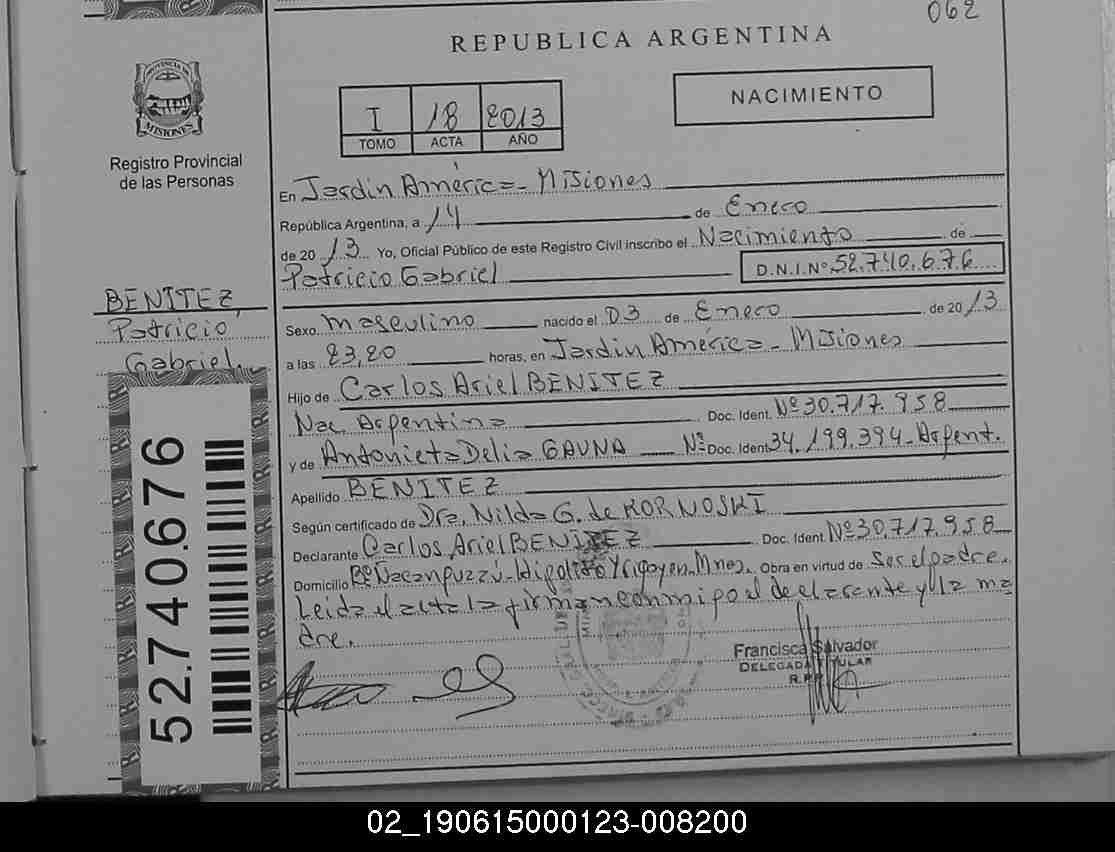 062
REPUBLICA ARGENTINA
PROVINCIA DE
MISIONES
Registro Provincial
de las Personas
I 18 2013
TOMO ACTA AÑO
NACIMIENTO
En Jardín América - Misiones
República Argentina, a 14 de Enero
de 2013 Yo, Oficial Público de este Registro Civil inscribo el Nacimiento de
Patricio Gabriel D.N.I.Nº 52.740.676
BENITEZ,
Patricio
Gabriel.
Sexo Masculino nacido el 03 de Enero de 2013
a las 23,20 horas, en Jardín América - Misiones
Hijo de Carlos Ariel BENITEZ
Nac. Argentina Doc. Ident. Nº 30.717.958
y de Antonieta Delia GAUNA Nº Doc. Ident 34.199.394 - Argent.
Apellido BENITEZ
Según certificado de Dra. Nilda G. de KORNOSKI
Declarante Carlos Ariel BENITEZ Doc. Ident Nº 30.717.958
Domicilio Bº Ñacanguazú - Hipolito Yrigoyen, Mnes. Obra en virtud de Ser el padre.
Leida el acta la firman conmigo el declarante y la ma
dre.
Francisca Salvador
DELEGADA TITULAR
52.740.676
02_190615000123-008200